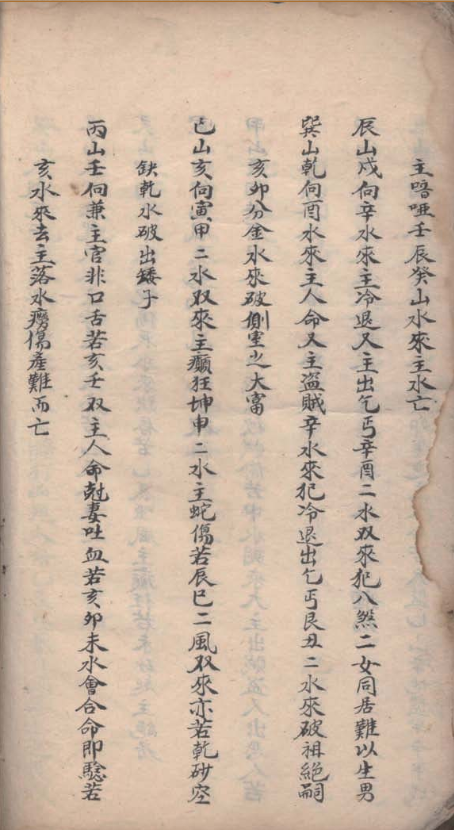 主喑啞壬辰癸山水來主水亡
辰山戍向辛水來主冷退又主出乞丐辛酉二水双來犯八煞二女同居難以生男
巽山乾向酉水來主人命又主盗賊辛水來犯冷退出乞丐艮丑二水來破祖絶嗣
亥卯分金水來破側室之大富
巳山亥向寅甲二水双來主癲狂坤申二水主蛇傷若辰巳二風双來亦若乾砂空
缺乾水破出矮子
丙山壬向兼主官非口舌若亥壬双主人命尅妻吐血若亥卯未水會合命即驗若
亥水來去主落水癆傷産難而亡